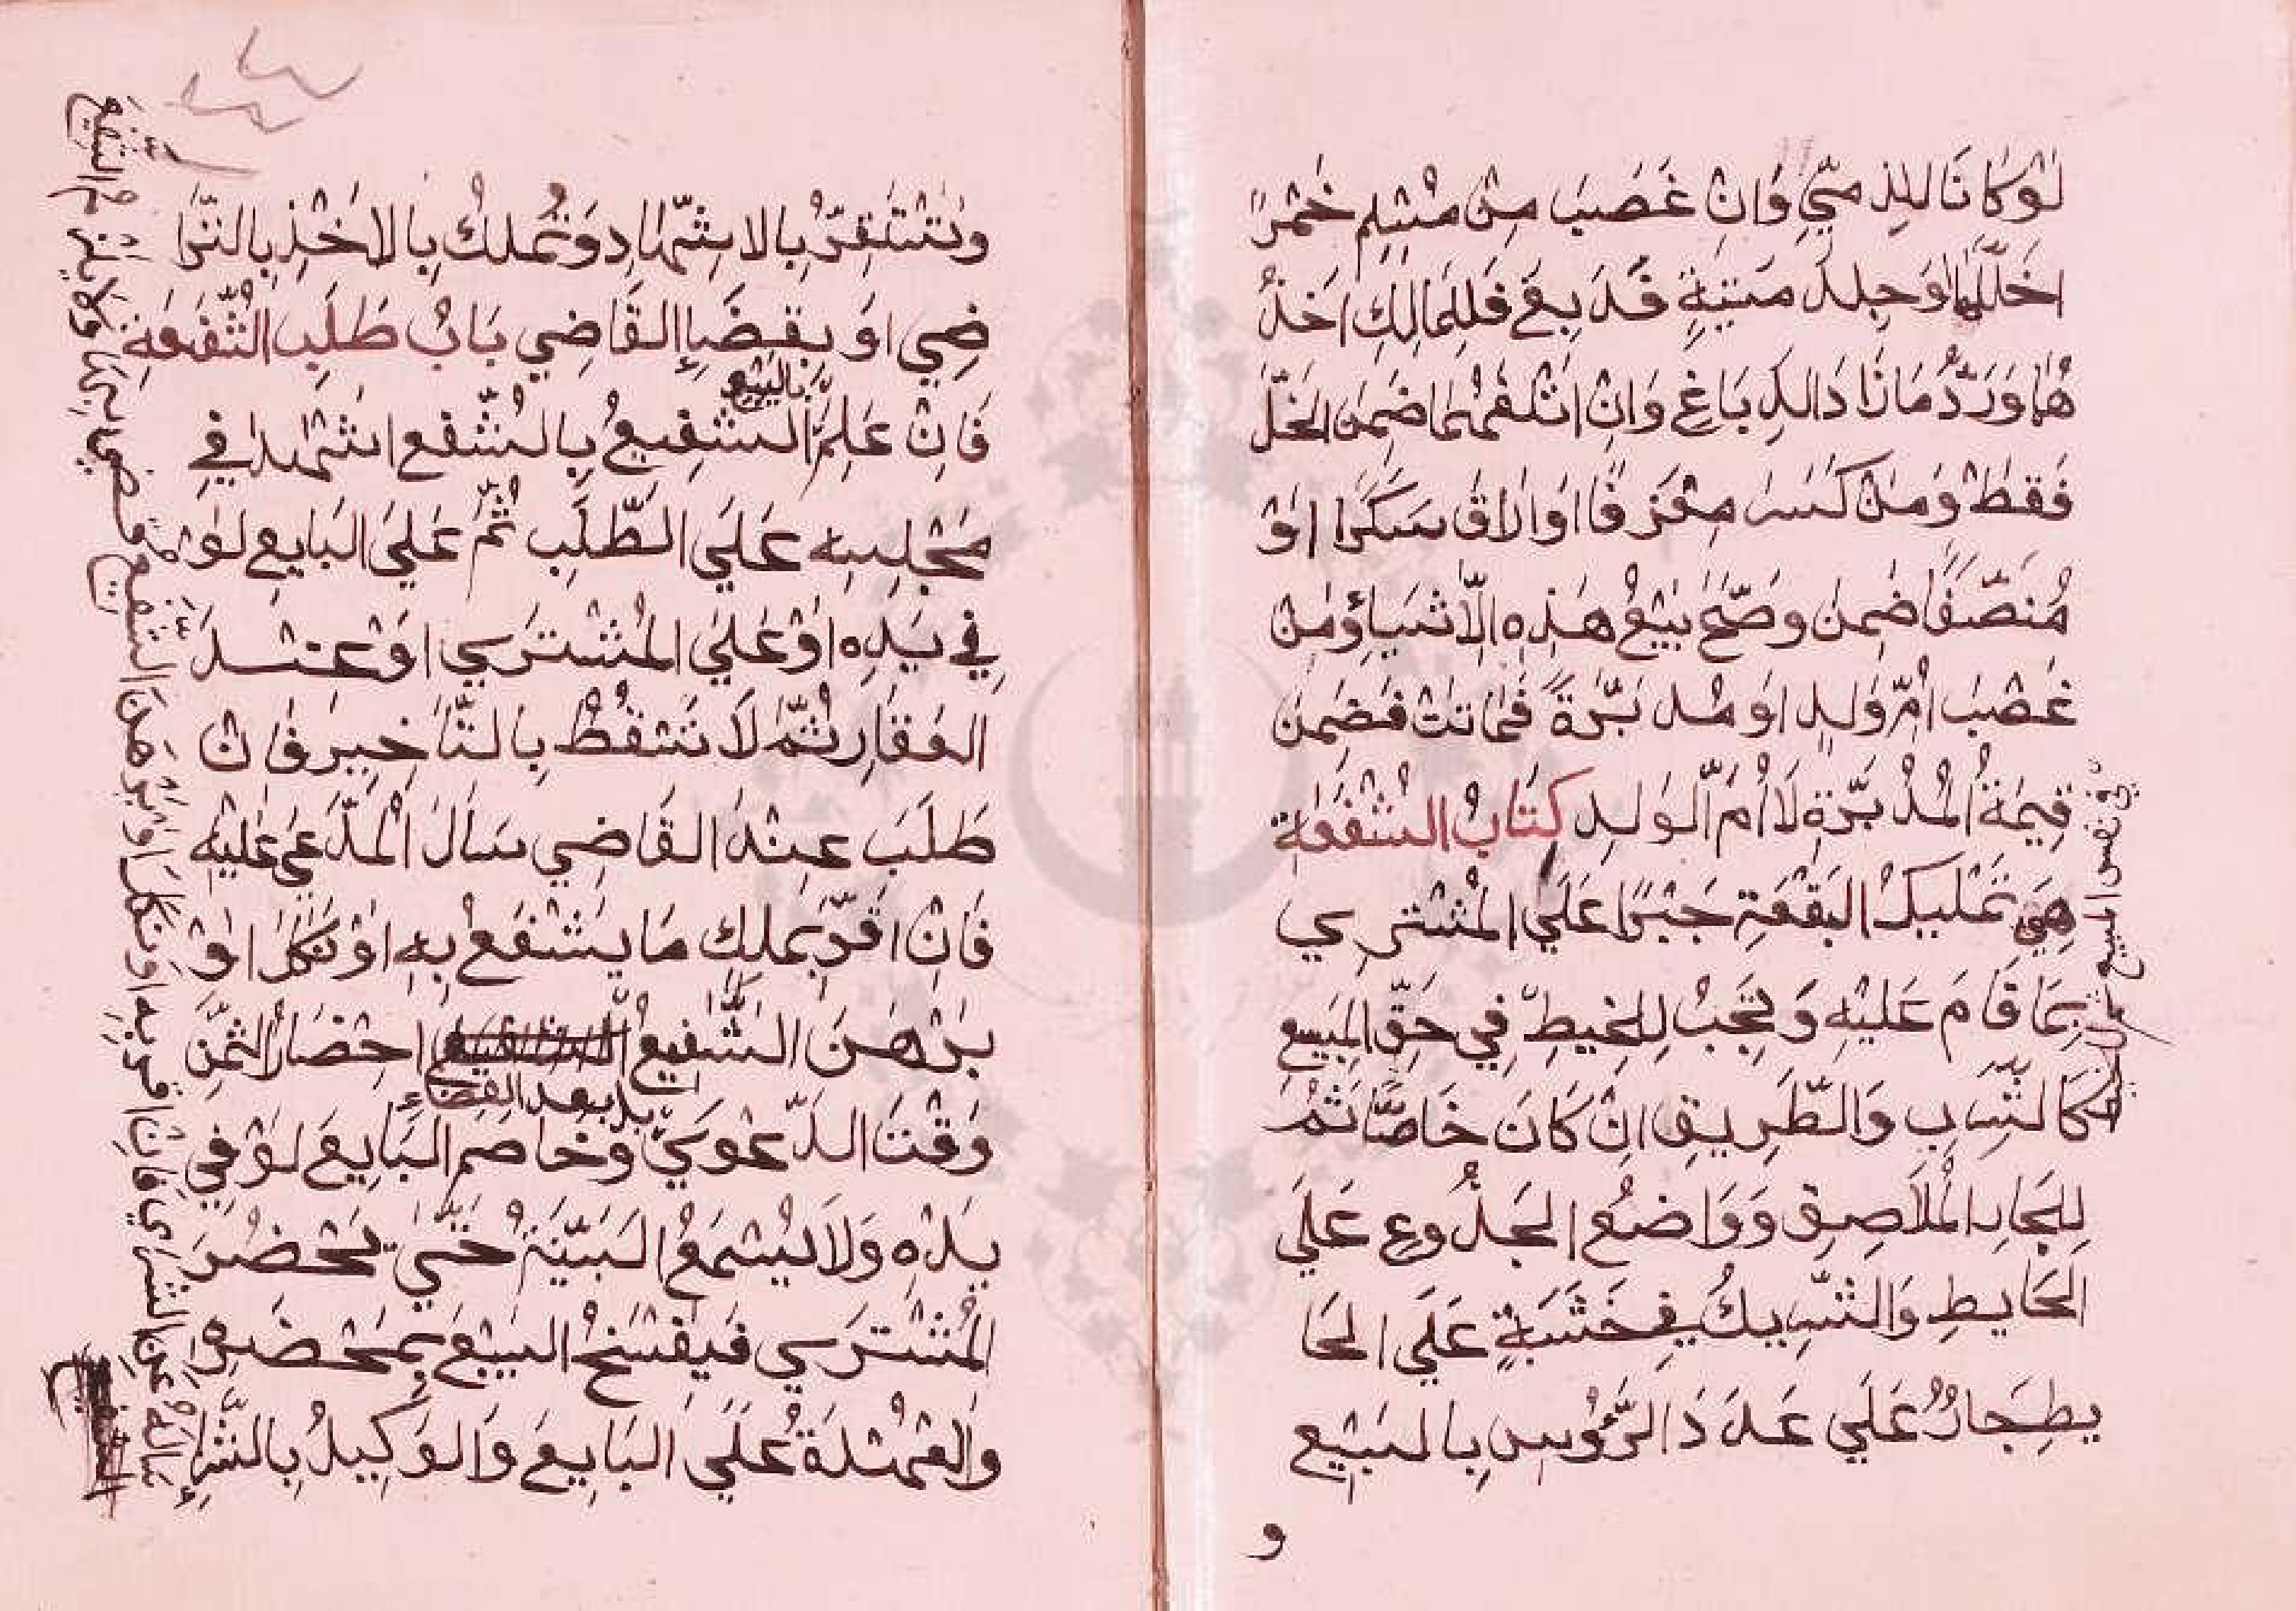 لَوْ كَانَا لِلذِمِّيِّ وَاِنْ غَصَبَ مِنْ مُسْلِمٍ خَمْرًا
اخَلَّلَهَا اَوْ جِلْدَ مَيْتَةٍ فَدَبِغَ فَلِلْمَالِكِ اَخْذُ
هُمَا وَرَدُّ مَا زَادَ الدِبَاغِ وَاِنْ اَتْلَفَهُمَا ضَمِنَ الْخَلَّ
فَقَطْ وَمَنْ كَسَرَ مِعْزَفًا اَوْ اَرَاقَ سَكَرًا اَوْ
مُنَصَّفًا ضَمِنَ وَصَحَّ بَيْعُ هَذِهِ الْاَشْيَاءِ وَمَنْ
غَصَبَ اُمَّ وَلَدٍ اَوْ مُدَبَّرَةً فَمَاتَتْ فَضَمِنَ
قِيمَةَ الْمُدْبَّرَةِ لَا اُمِّ الْوَلَدِ كِتَابُ الشُّفْعَةِ
هِيَ تَمْلِيكُ الْبُقْعَةِ جَبْرًا عَلَي الْمُشْتَرِي
بِمَا قَامَ عَلَيْهِ وَتَجِبُ لِلْخَلِيطِ فِي حَقِّ الْمَبِيعِ
كَالشِّرْبِ وَالطَّرِيقِ اِنْ كَانَ خَاصًّا ثُمَّ
لِلْجَارِ الْمُلَاصِقِ وَوَاضِعُ الْجُذُوعِ عَلَي
الْحَايِطِ وَالشَّرِيكُ فِي خَشَبَةٍ عَلَي الْحَا
يِطِ جَارٌ عَلَي عَدَدَ الرُّؤُسِ بِالْبَيْعِ
و
في نفس المبيع ثم للخليط
وَتَسْتَقِرُّ بِالْاِشْهَادِ وَتُمْلَكُ بِالْاَخْذِ بِالتَّرَا
ضِي اَوْ بِقَضَاءِ الْقَاضِي بَابُ طَلَبِ الشُّفْعَةِ
فَاِنْ عَلِمَ الشَّفِيعُ بِالشُّفْعِ اَشْهَدَ فِي
بالبيع
مَجْلِسِهِ عَلَي الطَّلَبِ ثُمَّ عَلَي الْبَايِعِ لَوْ
فِي يَدِهِ اَوْ عَلَي الْمُشْتَرِي اَوْ عِنْدَ
الْعَقَارِ ثُمَّ لَا تَسْقُطُ بِالتَّاخِيرِ فَاِنْ
طَلَبَ عِنْدَ الْقَاضِي سَاَلَ الْمُدَّعَى عَلَيْهِ
فَاِنْ اَقَرَّ بِمِلْكِ مَا يَشْفَعُ بِهِ اَوْ نَكَلَ اَوْ
بَرْهَنَ الشَّفِيعُ اِحْضَارُ الثَّمَنِ
وَقْتَ الدَّعْوَيَ وَخَاصَمَ الْبَايِعَ لَوْ فِي
بل بعد القضاء
يَدِهِ وَلَا يُسْمَعُ الْبَيِّنَةُ حَتَّيَ يَحْضُرَ
الْمُشْتَرِي فَيَفْسَخُ الْبَيْعَ بِمَحْضَرِهِ
وَالْعُهْدَةُ عَلَي الْبَايِعَ وَالْوَكِيلُ بِالشِّرَاءِ
سَاله عن الشراي فان اقر به او نكل او برهن الشفيع قضي بها ولا يلزم الشفيع